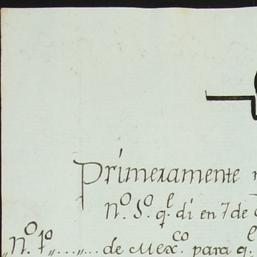 Primeramente
N.º 5.º q.e di en 7 de
„N.º 1º„....„... de Mex.co para q.e